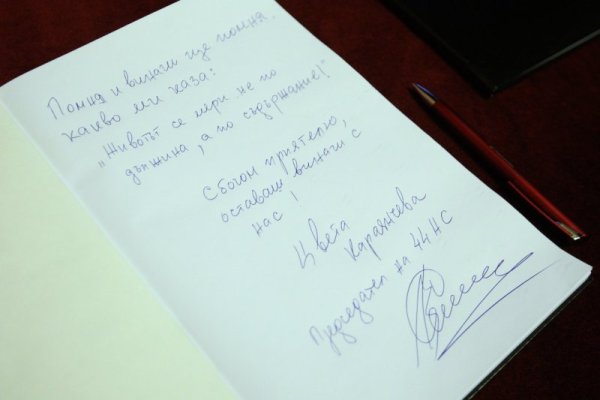 Помня и винаги ще помня,
какво ми каза:
"Животът се мери не по
дължина, а по съдържание!"
Сбогом приятелю,
оставаш винаги с
нас!
Цвета
Караянчева
Председател на 44 НС